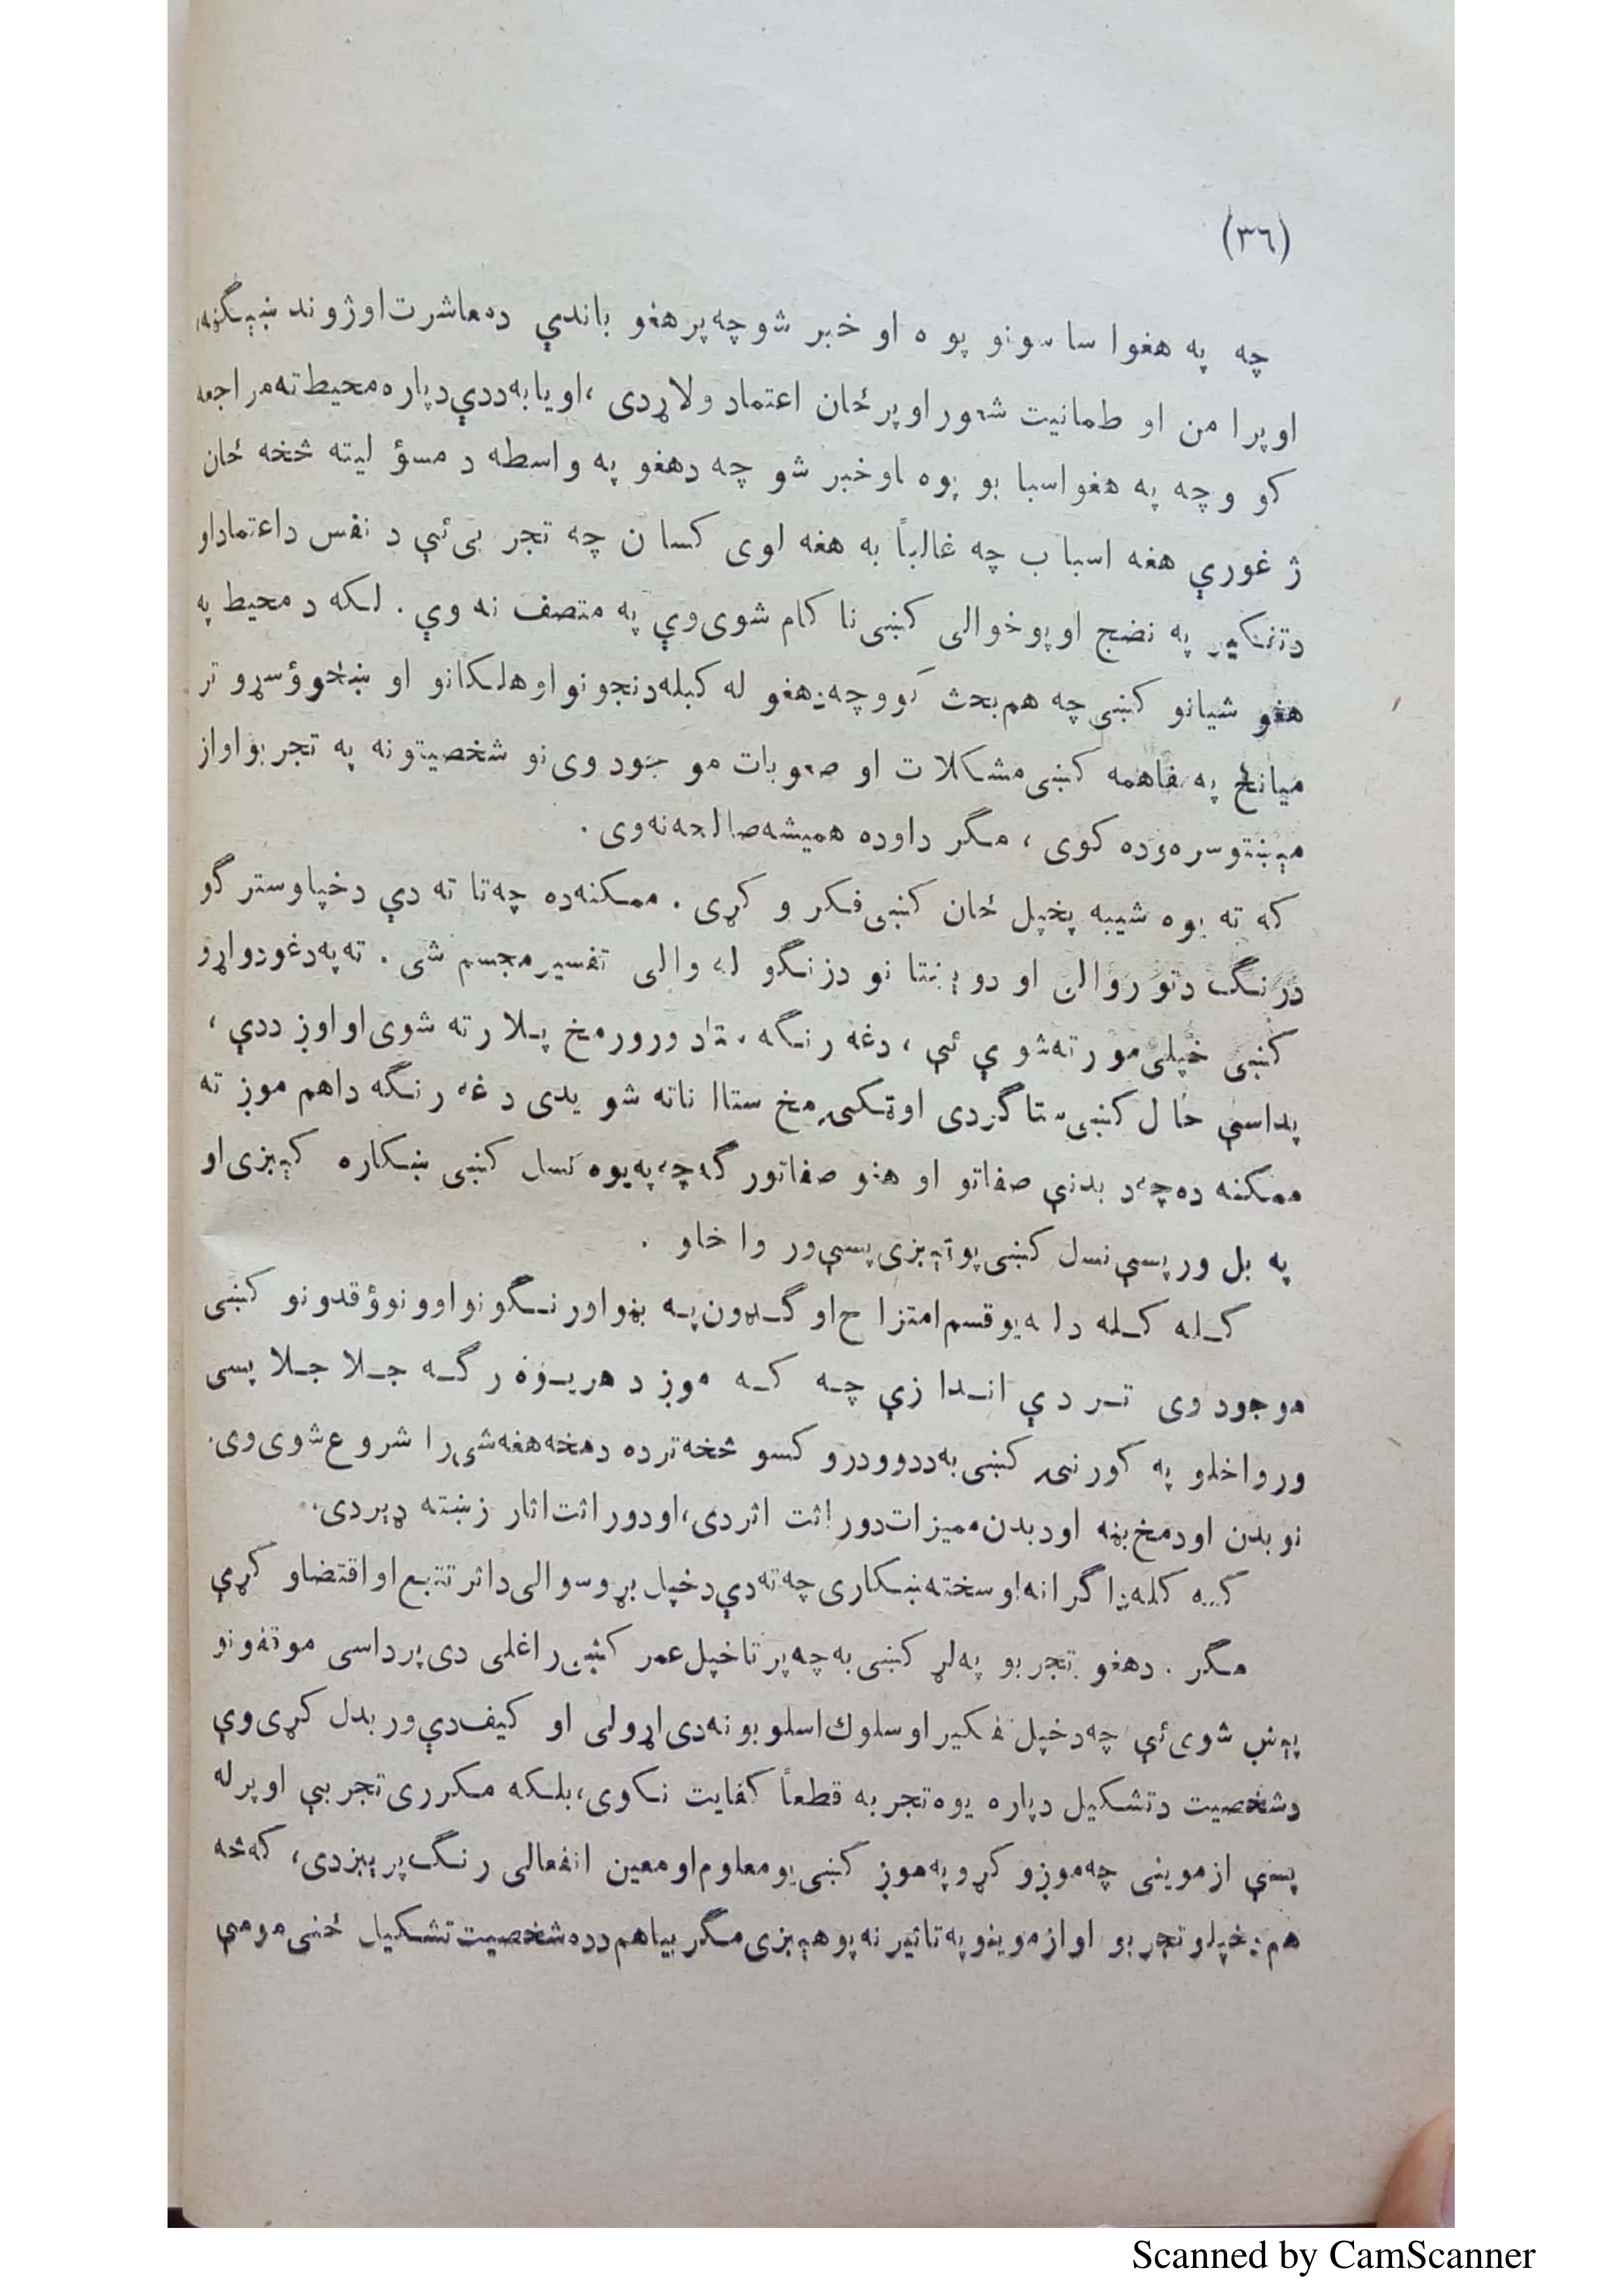 (٣٦)
چه په هغو اساسونو پوه او خبر شو چه پر هغو باندې ده معاشرت او ژوند ښېګڼه،
او پر امن او طمانيت شعور او پر ځان اعتماد ولاړدی، او يا به ددې دپاره محيط ته مراجعه
کو و چه په هغو اسبا بو پوه او خبر شو چه دهغو په واسطه د مسؤ ليته څخه ځان
ژ غورې هغه اسبا ب چه غالباً به هغه لوی کسا ن چه تجر بی ئې د نفس داعتماداو
دتفکير په نضج او پوخوالی کښی نا کام شوی وې په متصف نه وې . لکه د محيط په
هغو شيانو کښی چه هم بحث کوو چه دهغو له کبله دنجونو او هلکانو او ښځو ؤ سړو تر
ميانځ په مفاهمه کښی مشکلات او صعوبات مو جود وی نو شخصيتونه په تجر بو او از
مېښتو سره وده کوی ، مگر داوده هميشه صالحه نه وی .
که ته يوه شيبه پخپل ځان کښی فکر و کړی . ممکنه ده چه تا ته دې دخپلو ستر گو
درنگ دتور والی او دو ېښتا نو دزنگو له والی تفسير مجسم شی . ته په دغو دواړو
کښی خپلی مور ته شو ې ئې ، دغه رنگه ستا د ورور مخ پلار ته شوی او اوږددې ،
پداسې حال کښی ستا گردی او ټکی مخ ستا انا ته شو يدی دغه رنگه داهم موږ ته
ممکنه ده چه د بدنې صفاتو او هغو صفاتور گه چه په يوه نسل کښی ښکاره کېږی او
په بل ور پسې نسل کښی پوټېږی پسې ور وا خلو .
کله کله دا له يو قسم امتزا ج او گډون په بڼو او رنگونو او ونو ؤ قدو نو کښی
موجود وی تر دې اندا زې چه که موږ د هر يوه رگه جلا جلا پسی
ورواخلو په کورنی کښی به ددوو درو کسو څخه تر ده دمخه هغه شی را شروع شوی وی.
نو بدن او دمخ بڼه او دبدن مميزات دوراثت اثر دی، او دوراثت اثار زښته ډېر دی.
که کله دا گرانه او سخته ښکاری چه ته دې دخپل بړوسوالی داثر تتبع او اقتضاو کړې
مگر . دهغو تجر بو په لړ کښی به چه پر تا خپل عمر کښی راغلی دی پر داسی موقفونو
پېښ شوی ئې چه دخپل تفکير او سلوك اسلوبونه دی اړولی او کيف دې ور بدل کړی وې
دشخصيت دتشکيل دپاره يوه تجر به قطعاً کفايت نکوی، بلکه مکرری تجربې او پر له
پسې ازموينی چه موږ و کړو په موږ کښی يو معلوم او معين انفعالی رنگ پرېږدی، که څه
هم دخپلو تجر بو او ازموينو په تاثير نه پوهېږی مگر بيا هم دده شخصيت تشکيل ځنی مومی
Scanned by CamScanner